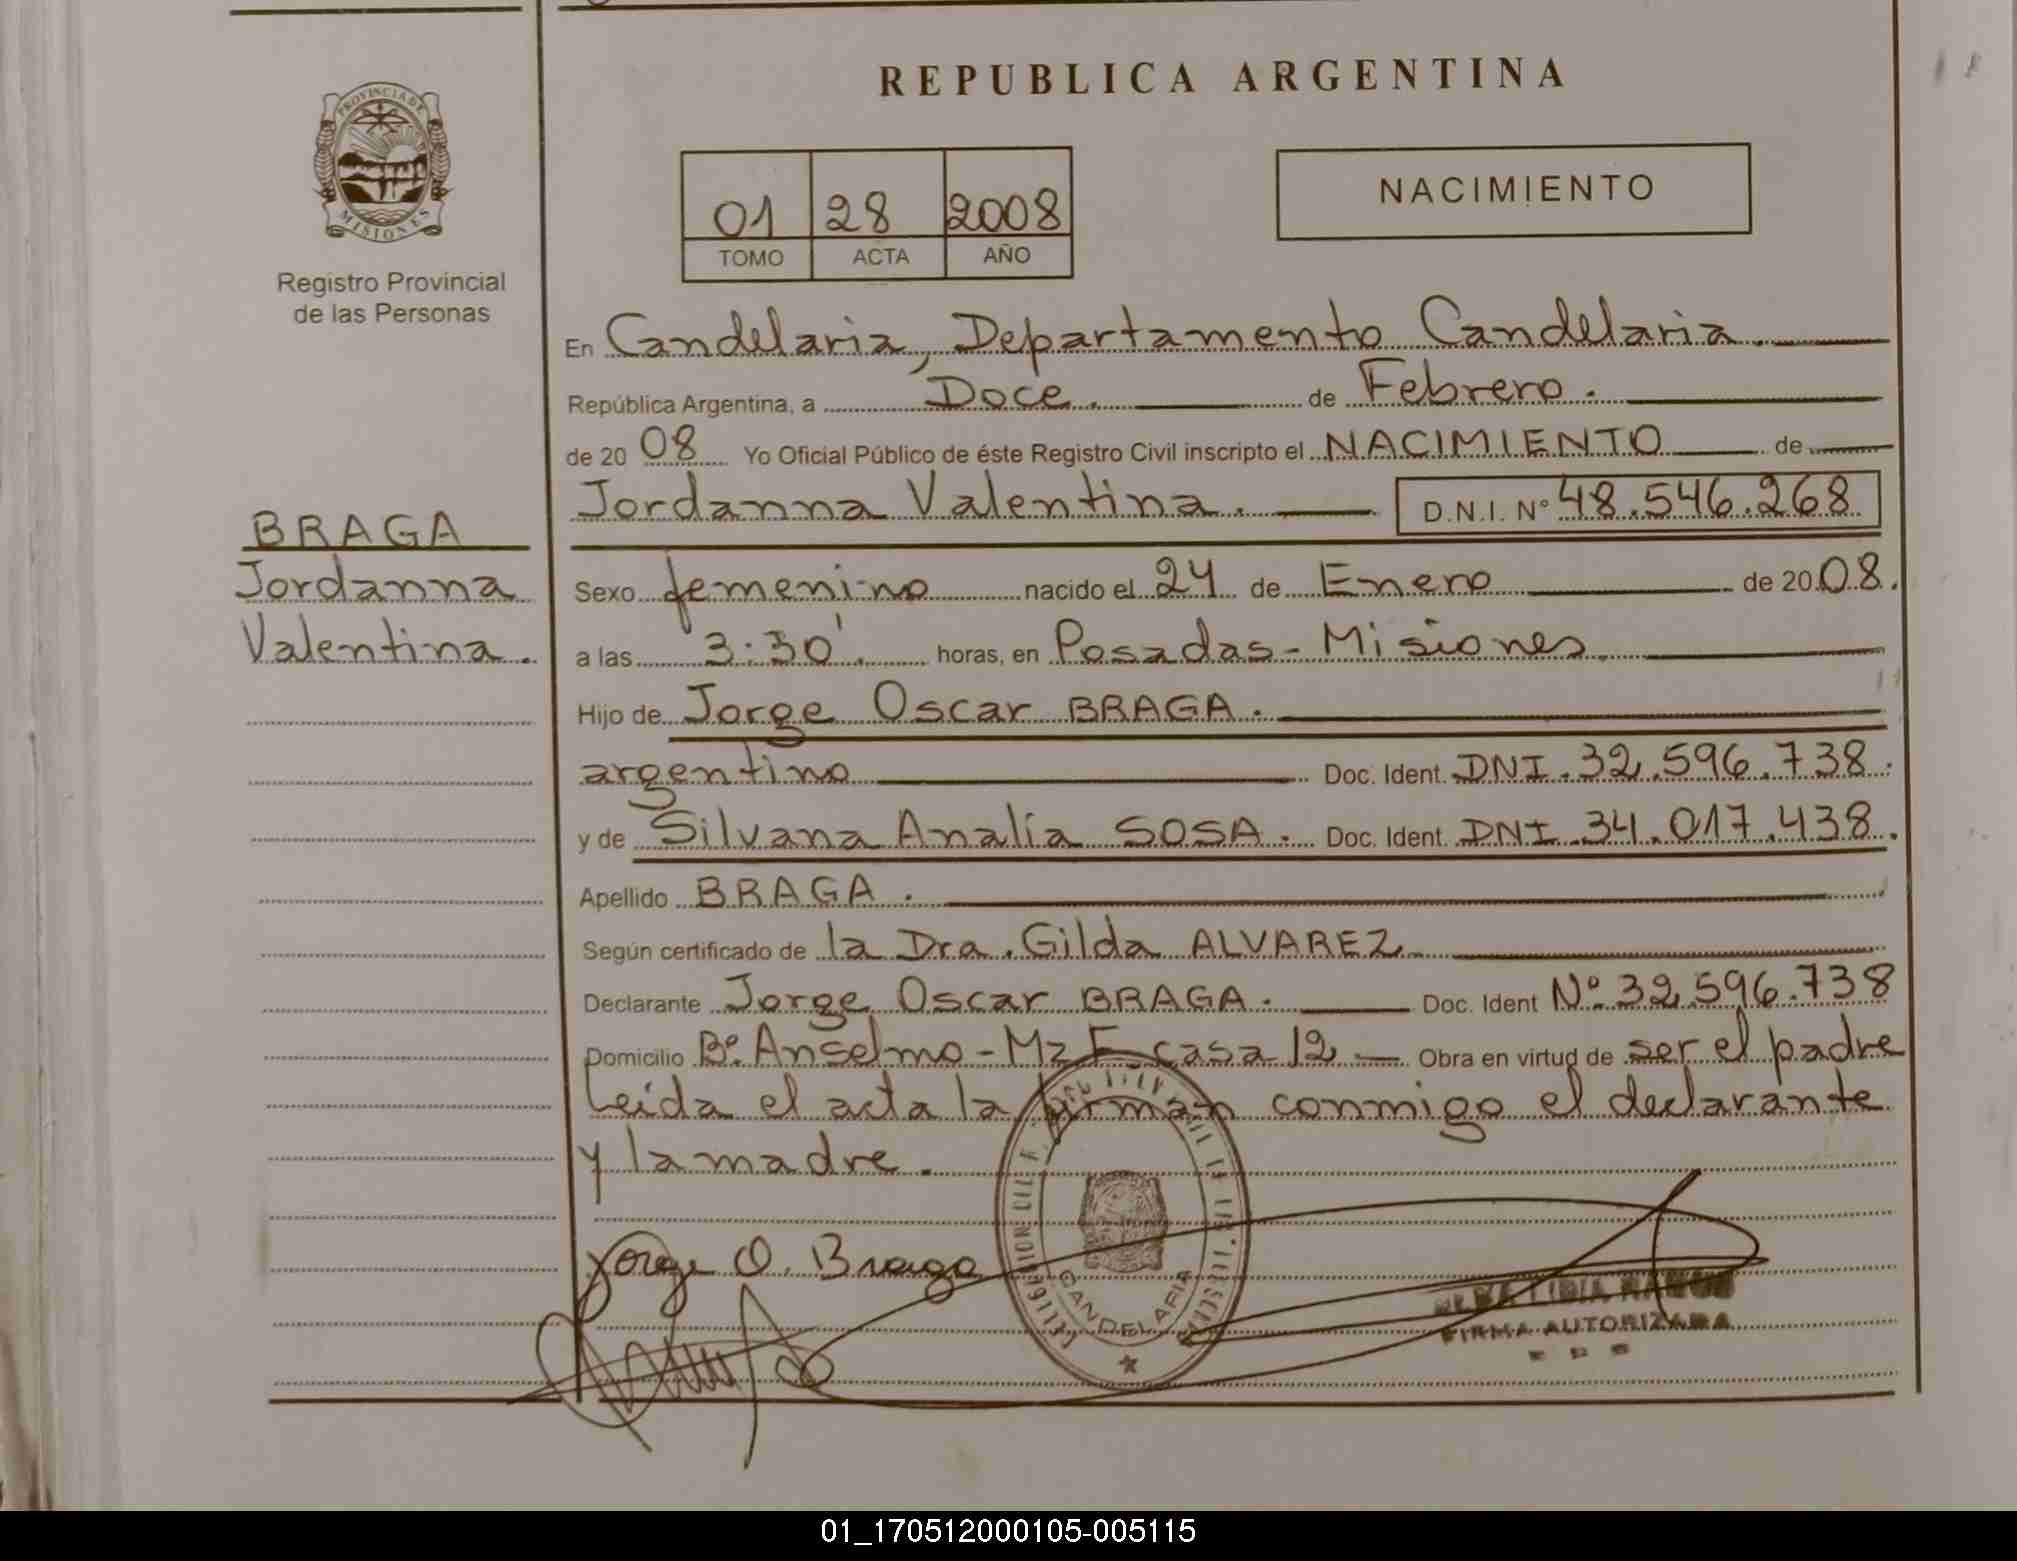 REPUBLICA ARGENTINA
PROVINCIA DE MISIONES
Registro Provincial
de las Personas
01 28 2008
TOMO ACTA AÑO
NACIMIENTO
En Candelaria, Departamento Candelaria.
República Argentina, a Doce. de Febrero.
de 20 08 Yo Oficial Público de éste Registro Civil inscripto el NACIMIENTO de
Jordanna Valentina. D.N.I. Nº 48.546.268
BRAGA
Jordanna
Valentina.
Sexo femenino nacido el 24 de Enero de 20 08.
a las 3:30'. horas, en Posadas - Misiones.
Hijo de Jorge Oscar BRAGA.
argentino Doc. Ident. DNI. 32.596.738.
y de Silvana Analía SOSA. Doc. Ident. DNI. 34.017.438.
Apellido BRAGA.
Según certificado de la Dra. Gilda ALVAREZ
Declarante Jorge Oscar BRAGA. Doc. Ident Nº. 32.596.738
Domicilio Bº. Anselmo - Mz F casa 12 Obra en virtud de ser el padre
Leída el acta la firman conmigo el declarante
y la madre.
Jorge O. Braga
CANDELARIA
LIDIA
FIRMA AUTORIZADA
01_170512000105-005115